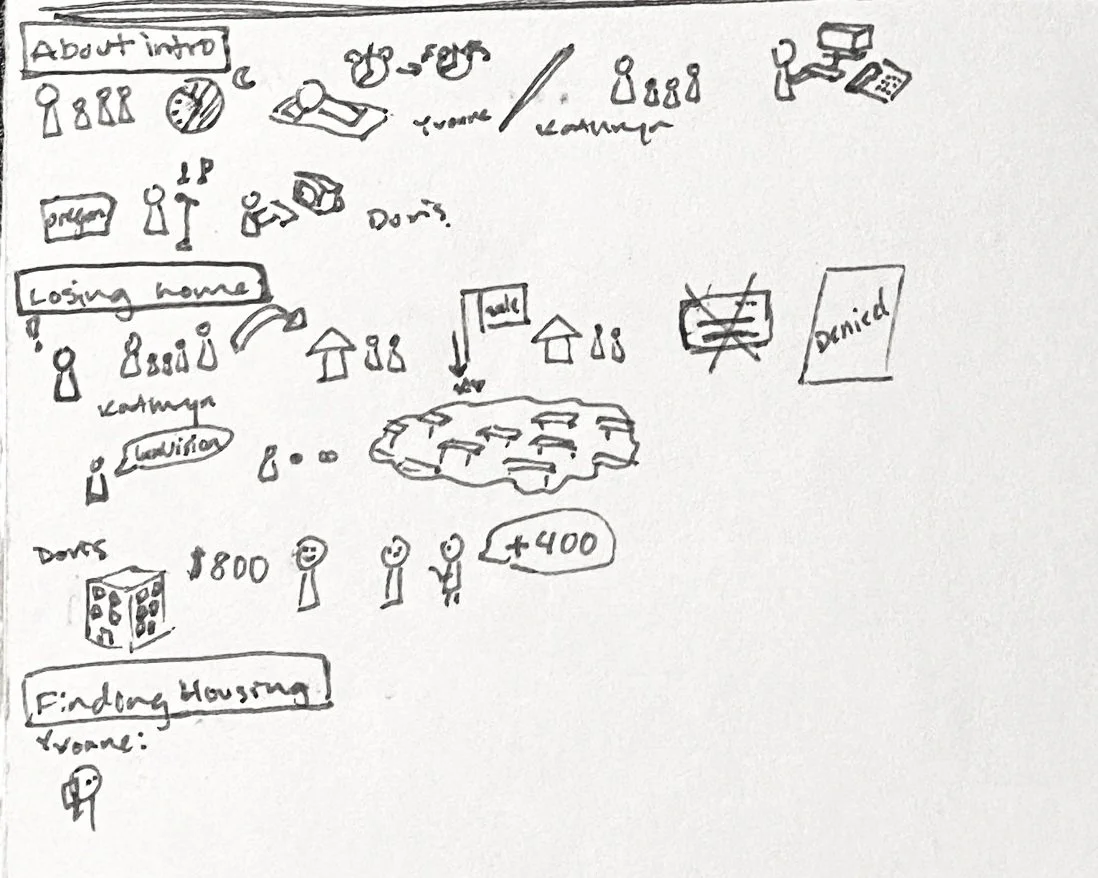 About intro
Yvonne
Kathryn
18
oregon
Doris
Losing home
sale
Denied
Kathryn
Doris
$800
+400
Finding Housing
Yvonne: